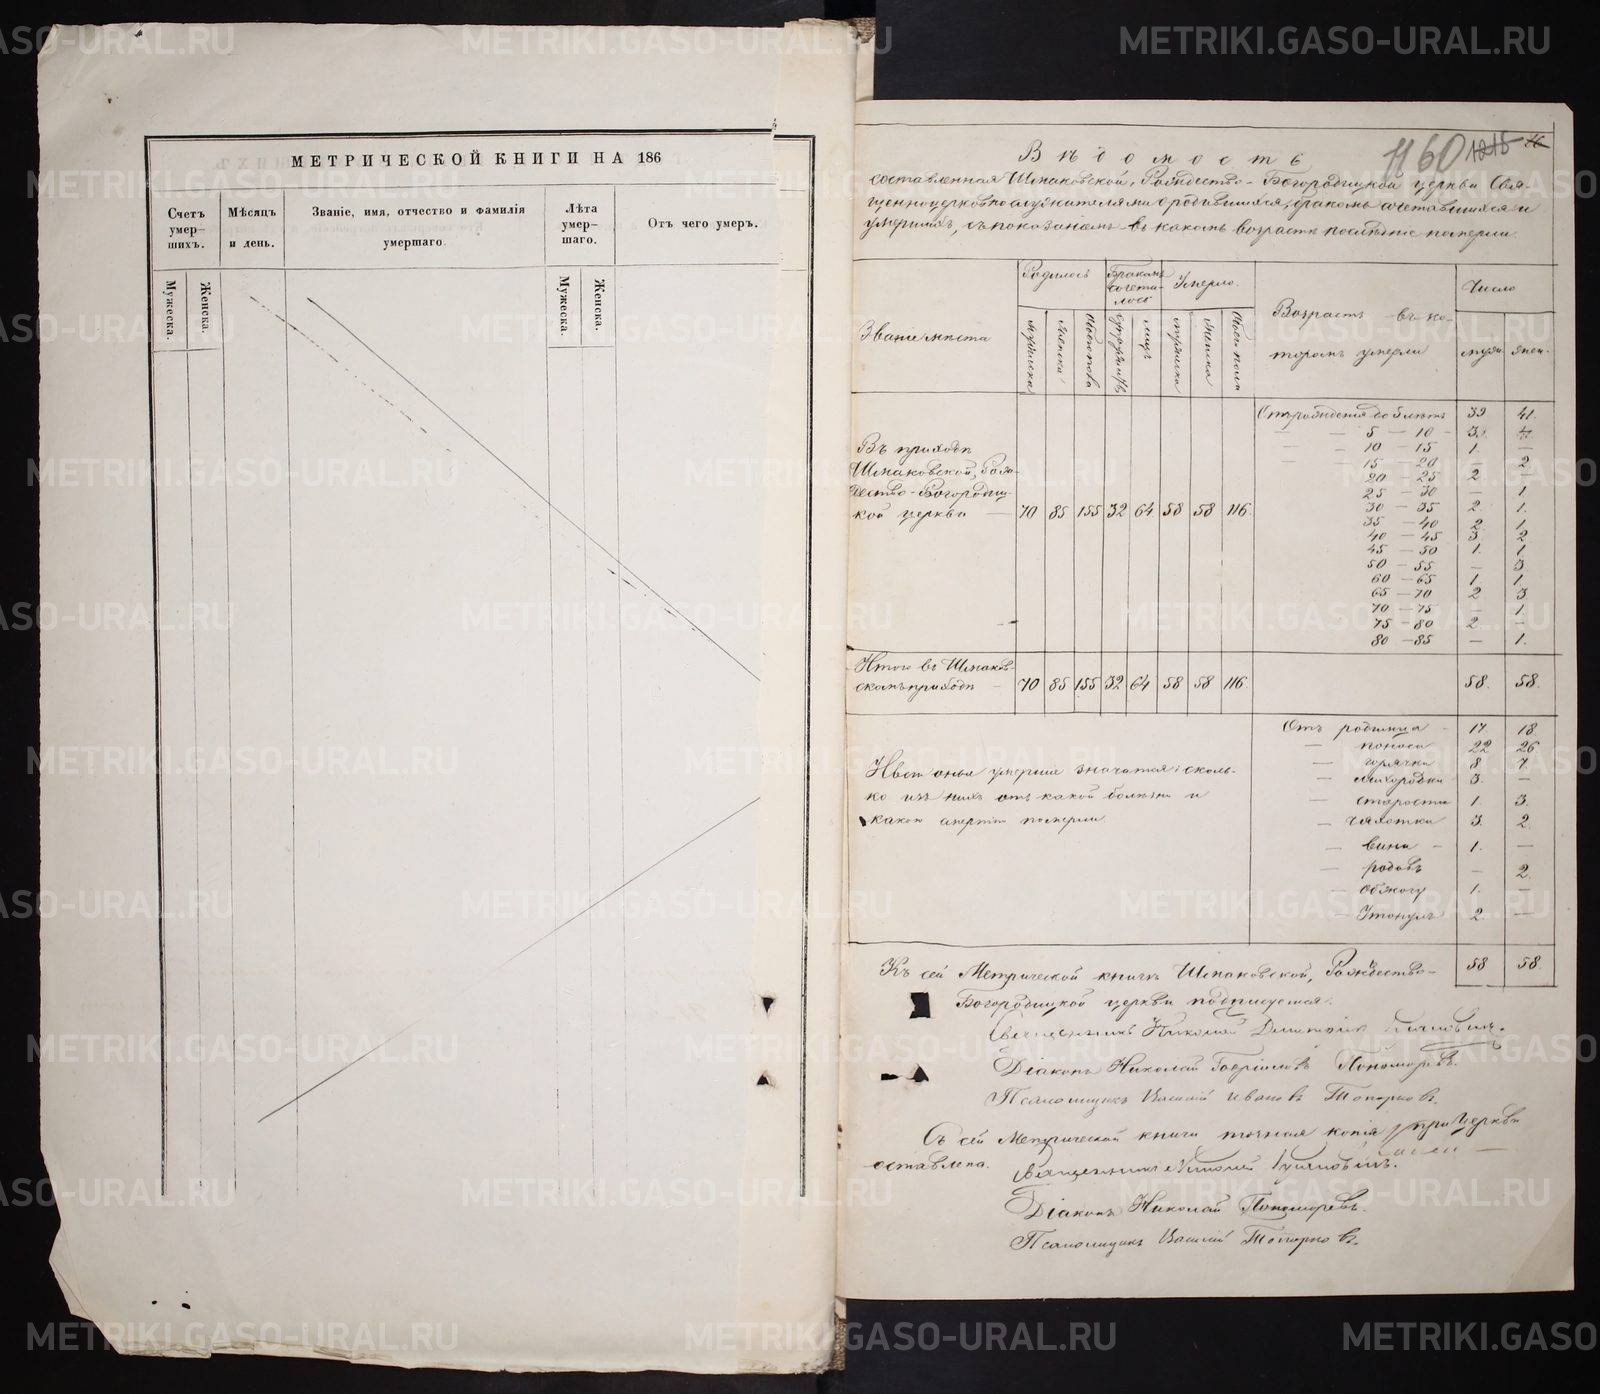 МЕТРИЧЕСКОЙ КНИГИ НА 186
Счетъ умер— шихъ.
Мѣсяцъ и день.
Званіе, имя, отчество и фамилія умершаго.
Лѣта умер— шаго.
Отъ чего умеръ.
Мужеска.
Женска.
Мужеска.
Женска.
1160 1215 16
Вѣдомость
составленная Шпаковской, Рождество-Богородицкой церкви Свя-
щенноцерковнослужителями о родившихся, бракомъ сочетавшихся и
умершихъ, съ показаніемъ въ какомъ возрастѣ послѣдніе померли.
Званіе мѣста
Родилось
Бракомъ сочета- лось
Умерло.
Возрастъ въ ко-
торомъ умерли
Число
мужеска
женска
обоего пола
супружествъ
лицъ
мужеска
женска
обоего пола
муж.
жен.
Въ приходѣ
Шпаковской, Рож-
дество-Богородиц-
кой церкви — 70 85 155 32 64 58 58 116.
Отъ рожденія до 5 лѣтъ 39 41.
— — 5 — 10 - 3.
— 10 — 15 1. —
— 15 — 20 — 2
20 — 25 2 —
25 — 30 — 1.
30 — 35 2. 1.
35 — 40 2. 1.
40 — 45 3. 2
45 — 50 1. 1
50 — 55 — 3
60 — 65 1. 1.
65 — 70 2 3
70 — 75 — 1.
75 — 80 2. —
80 — 85 — 1.
Итого въ Шпаков-
скомъ приходѣ — 70 85 155 32 64 58 58 116. 58. 58.
умершіе значатся: сколь-
ко изъ нихъ отъ какой болѣзни и
какою смертію померли.
Отъ родимца - 17 18
— поноса 22 26
— горячки 8 7.
— лихорадки 3. —
— старости 1. 3.
— чахотки 3. 2
— вина - 1. —
— родовъ — 2.
— обжогу 1. —
— Утонулъ 2. —
58 58.
Къ сей Метрической книгѣ Шпаковской, Рождество-
Богородицкой церкви подписуемся.
Священникъ Николай
Діаконъ Николай Гавріиловъ Пономаревъ.
Псаломщикъ Василій Ивановъ Топорковъ.
Съ сей Метрической книги точная копія при Церкви
оставлена.
Священникъ Николай
Діаконъ Николай Пономаревъ.
Псаломщикъ Василій Топорковъ.
METRIKI.GASO-URAL.RU